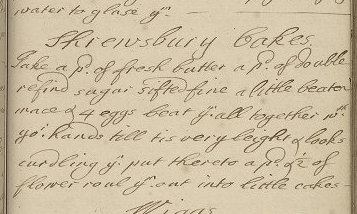 water to glose ym.
Shrewsbury Cakes
Take a pd. of fresh butter a pd. of double
refind sugar sifted fine a little beaten
mace & 4 eggs beat ym all together wth.
yor. hands till tis very leight & looks
curdling yn. put thereto a pd. & ½ of
flower roul ym. out into little cakes
Wiggs